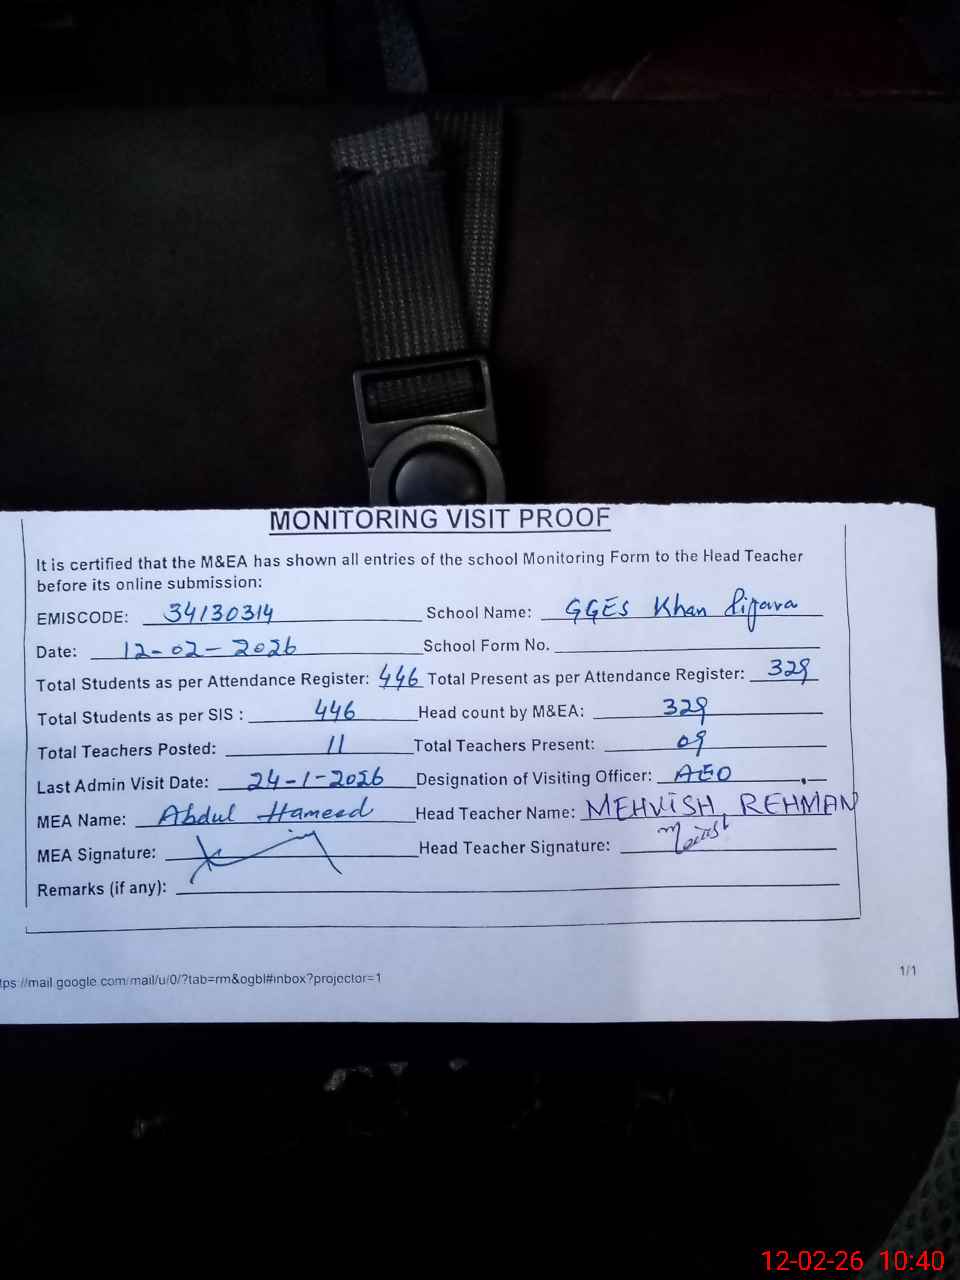 MONITORING VISIT PROOF
It is certified that the M&EA has shown all entries of the school Monitoring Form to the Head Teacher
before its online submission:
EMISCODE: 34130314 School Name: GGES Khan Pijara
Date: 12-02-2026 School Form No.
Total Students as per Attendance Register: 446 Total Present as per Attendance Register: 329
Total Students as per SIS : 446 Head count by M&EA: 329
Total Teachers Posted: 11 Total Teachers Present: 09
Last Admin Visit Date: 24-1-2026 Designation of Visiting Officer: AEO
MEA Name: Abdul Hameed Head Teacher Name: MEHVISH REHMAN
MEA Signature: Head Teacher Signature:
Remarks (if any):
tps://mail.google.com/mail/u/0/?tab=rm&ogbl#inbox?projector=1 1/1
12-02-26 10:40